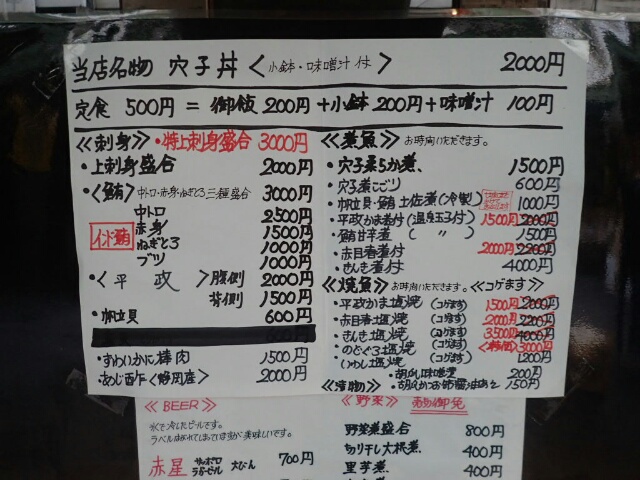 当店名物 穴子丼 <小鉢・味噌汁付> 2000円
定食 500円 = 御飯 200円 + 小鉢 200円 + 味噌汁 100円
≪刺身≫ ・特上刺身盛合 3000円
・上刺身盛合 2000円
・<鮪> 中トロ・赤身・ねぎとろ 三種盛合 3000円
インド鮪
中トロ 2500円
赤身 1500円
ねぎとろ 1000円
ブツ 1000円
・<平政> 腹側 2000円
背側 1500円
・帆立貝 600円
・ずわいかに棒肉 1500円
・あじ酢〆<静岡産> 2000円
≪煮魚≫ お時間いただきます。
・穴子柔らか煮、 1500円
・穴子煮こごり 600円
・帆立貝・鮪 土佐煮(冷製) 1000円
・平政かま煮付(温泉玉子付) 1500円 2000円
・鮪甘辛煮 ( 〃 ) 1500円
・赤目春煮付 2000円 2200円
・きんき煮付 4000円
≪焼魚≫ お時間いただきます。≪コゲます≫
・平政かま塩焼 (コゲます) 1500円 2000円
・赤目春塩焼 (コゲます) 2000円 2200円
・きんき塩焼 (コゲます) 3500円 4000円
・のどぐろ塩焼 (コゲます) <特価> 3000円
・いわし塩焼 (コゲます) 1200円
≪漬物≫
・胡瓜味噌漬 200円
・胡瓜かつお節醤油あえ 150円
≪BEER≫
氷で冷したビールです。
ラベルはがれてしまっていますが美味しいです。
赤星 サッポロ ラガービール 大びん 700円
≪野菜≫
野菜煮盛合 800円
切り干し大根煮 400円
里芋煮 400円